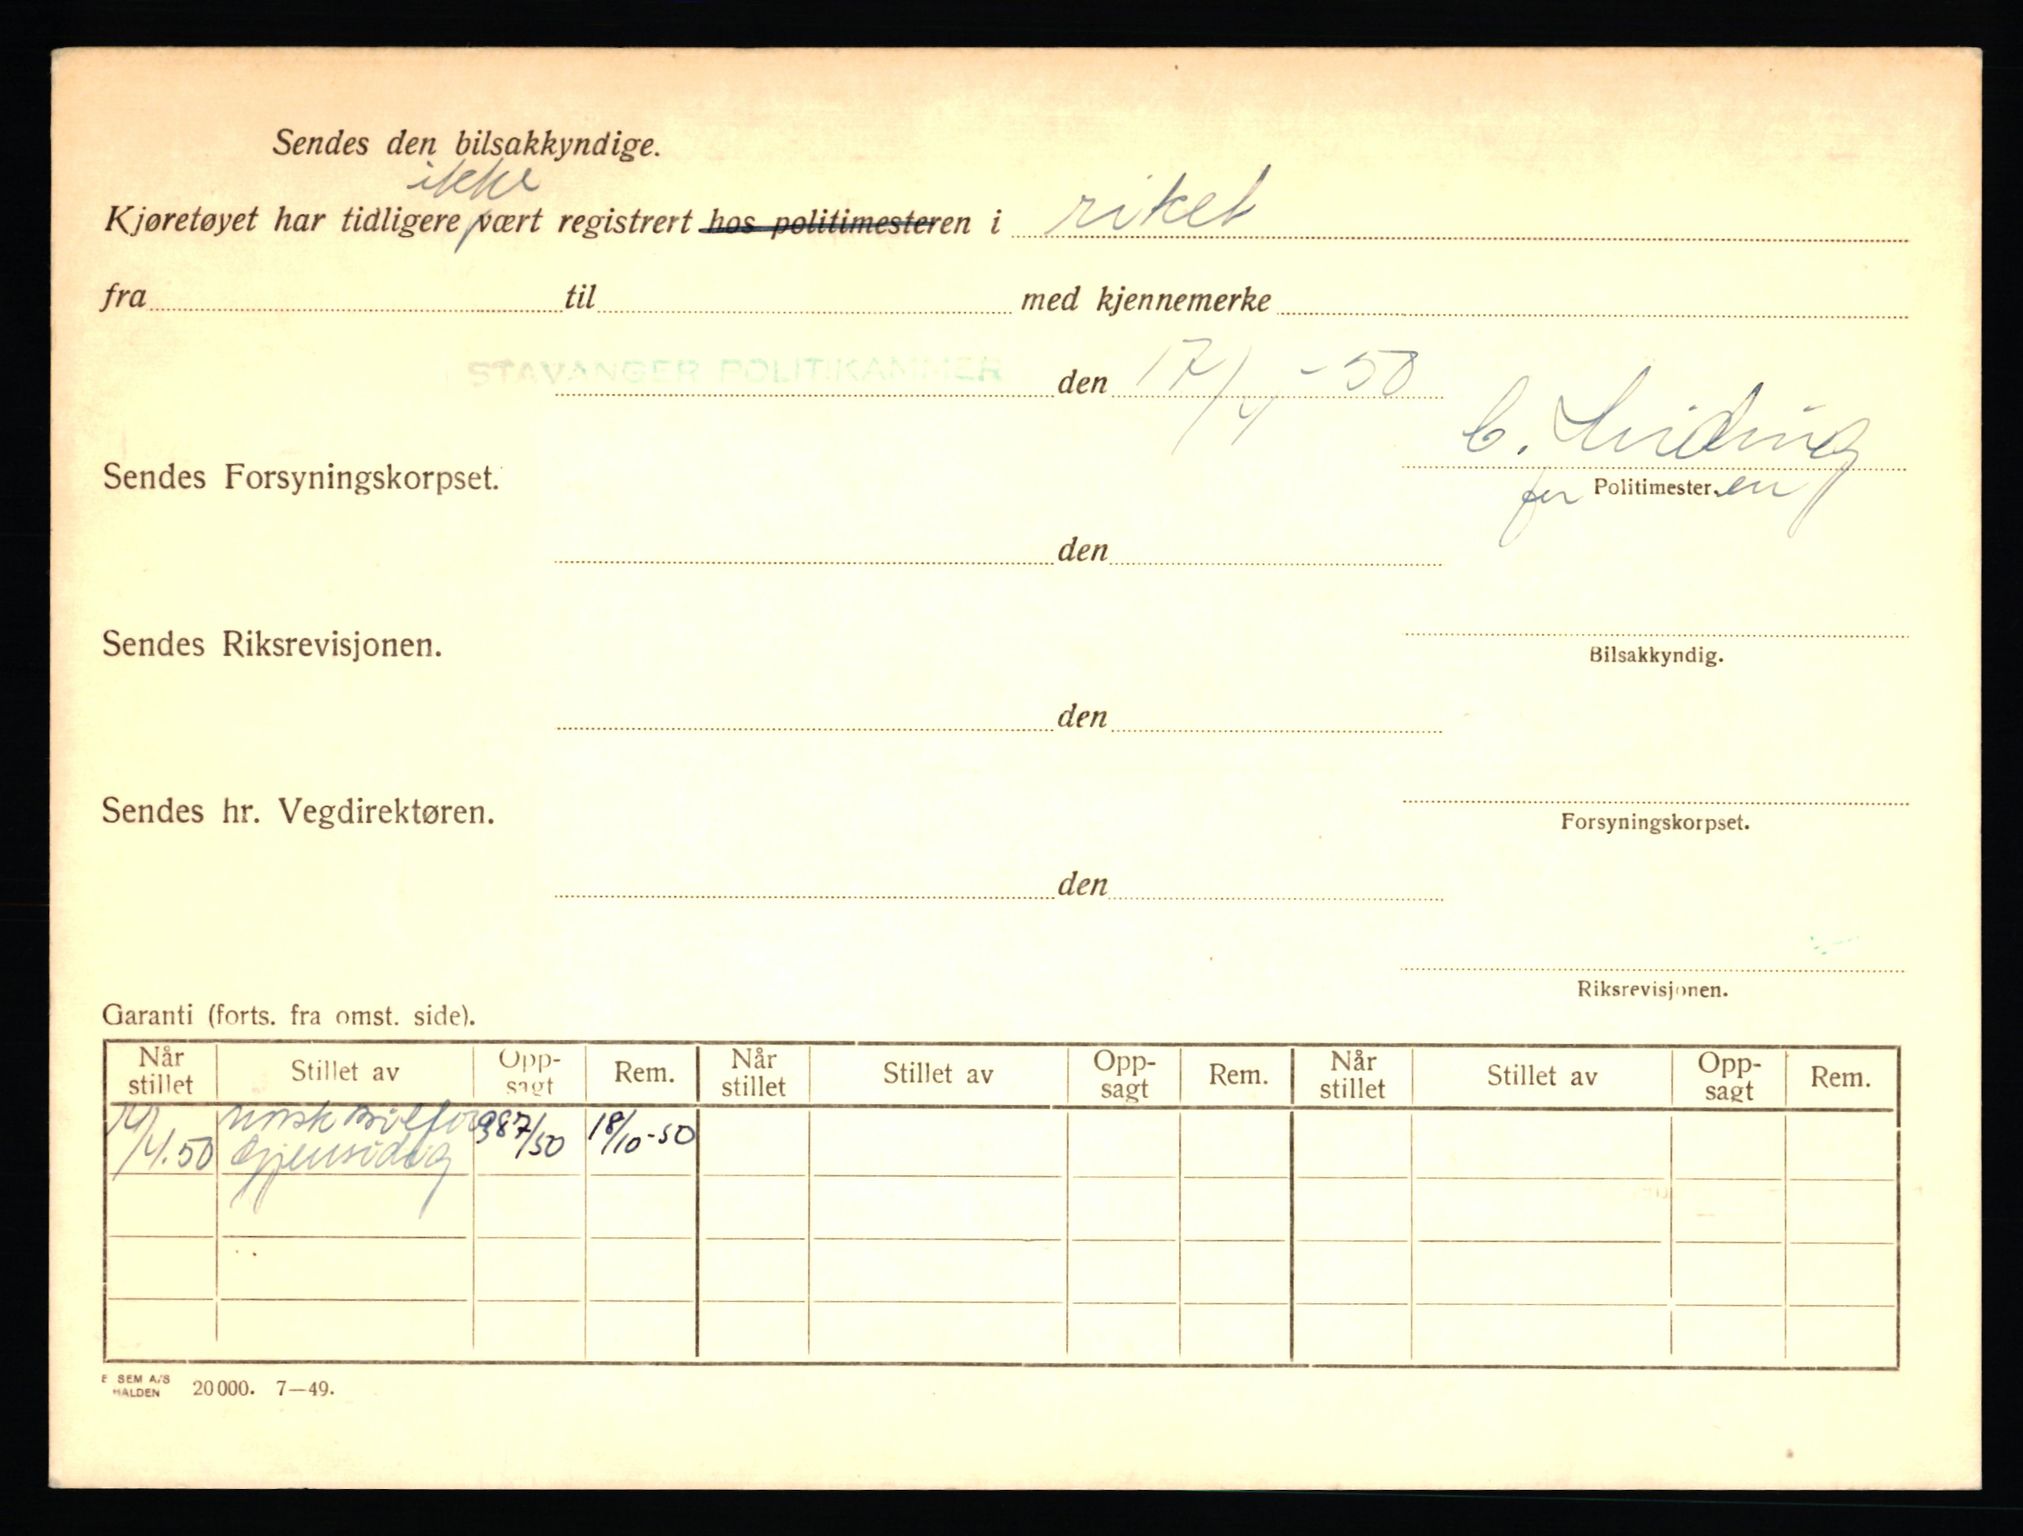 Sendes den bilsakkyndige.
ikke
Kjøretøyet har tidligere vært registrert hos politimesteren i riket
fra til med kjennemerke
STAVANGER POLITIKAMMER den 17/4-50
Sendes Forsyningskorpset.
for Politimester.en
den
Sendes Riksrevisjonen.
Bilsakkyndig.
den
Sendes hr. Vegdirektøren.
Forsyningskorpset.
den
Riksrevisjonen.
Garanti (forts. fra omst. side).
Når stillet Stillet av Opp-sagt Rem. Når stillet Stillet av Opp-sagt Rem. Når stillet Stillet av Opp-sagt Rem.
Norsk Bilfor 987/50 18/10-50
/4.50 Gjensidig
SEM A/S
HALDEN 20000. 7—49.